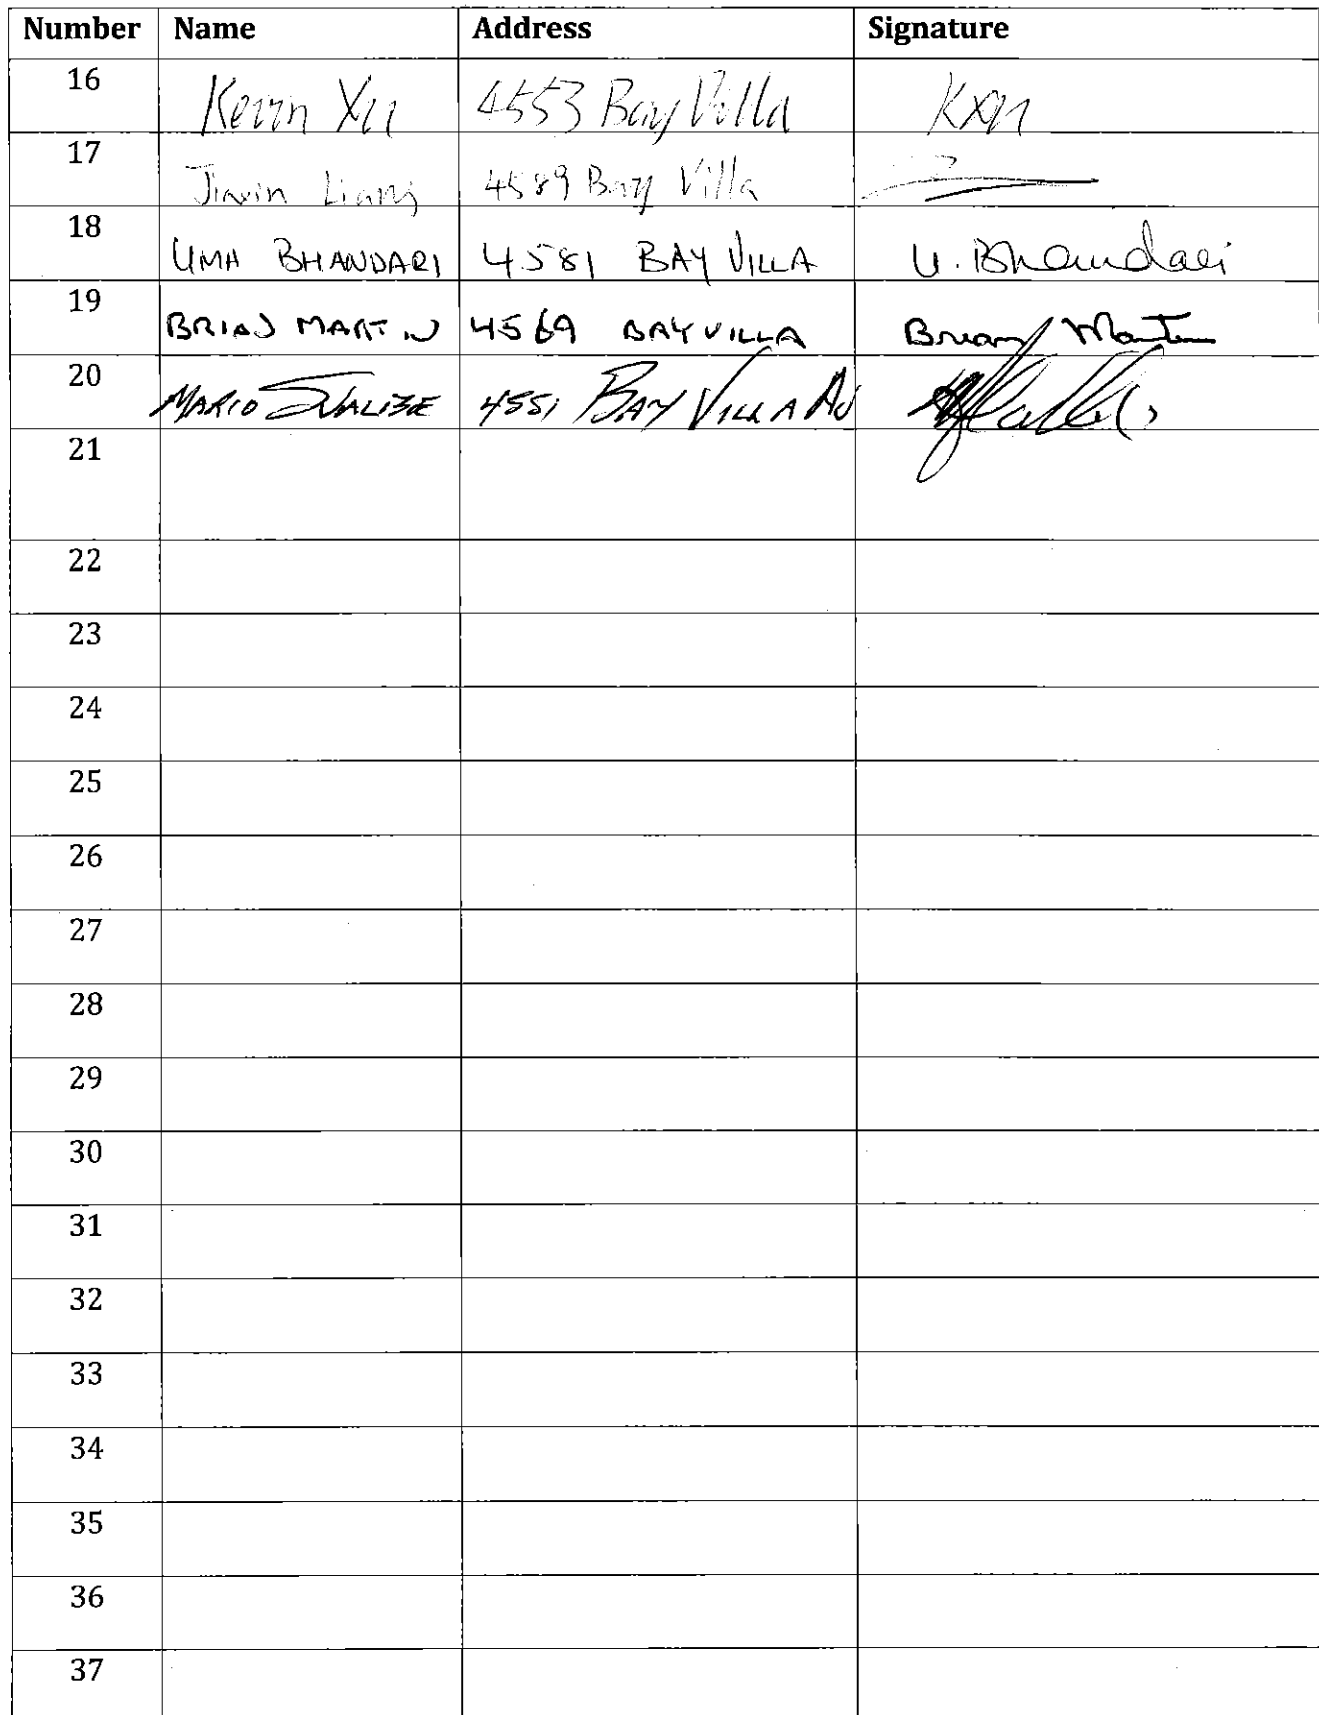 Number Name Address Signature
16 Kevin Xu 4553 Bay Villa KXu
17 Liang 4589 Bay Villa
18 UMA BHANDARI 4581 BAY VILLA U. Bhandari
19 BRIAN MARTIN 4569 BAYVILLA Brian Martin
20 MARIO 4551 BAY VILLA AV
21
22
23
24
25
26
27
28
29
30
31
32
33
34
35
36
37